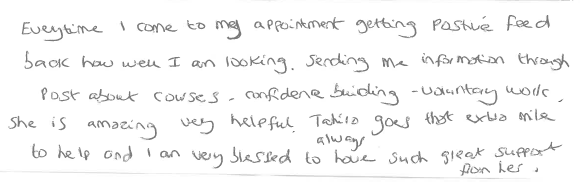 Everytime I come to my appointment getting Positive feed
back how well I am looking. Sending me information through
Post about courses - confidence building - voluntary work.
She is amazing very helpful. goes that extra mile
always
to help and I am very blessed to have such great support
from her.